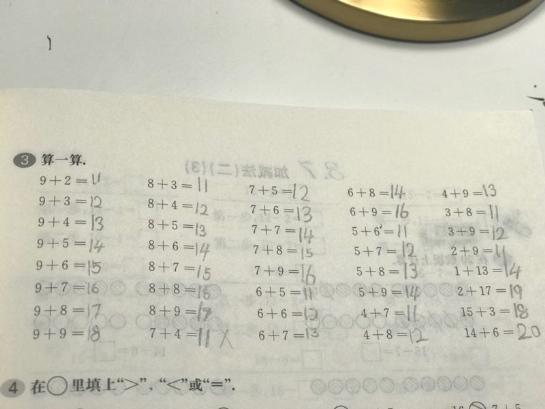 3 算一算.
9+2=11 8+3=11 7+5=12 6+8=14 4+9=13
9+3=12 8+4=12 7+6=13 6+9=16 3+8=11
9+4=13 8+5=13 7+7=14 5+6=11 3+9=12
9+5=14 8+6=14 7+8=15 5+7=12 2+9=11
9+6=15 8+7=15 7+9=16 5+8=13 1+13=14
9+7=16 8+8=16 6+5=11 5+9=14 2+17=19
9+8=17 8+9=17 6+6=12 4+7=11 15+3=18
9+9=18 7+4=11 X 6+7=13 4+8=12 14+6=20
4 在○里填上“>”,“<”或“=”.
7+5